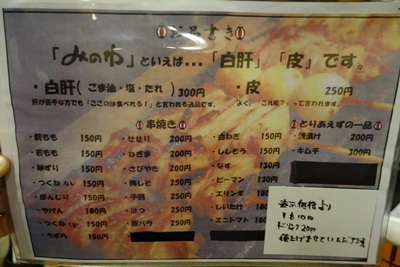 お品書き
「みのや」といえば…「白肝」「皮」です。
・白肝（ごま油・塩・たれ） 300円
肝が苦手な方でも「ここのは食べれる！」と言われる逸品です。
・皮 250円
よく、「これ皮？」って言われます。
串焼き
・親もも 150円
・若もも 150円
・砂ずり 150円
・つくね 150円
・ぼんじり 150円
・やげん 180円
・つくね 150円
・うずら 150円
・せせり 200円
・ねぎま 150円
・さびやき 200円
・梅しそ 150円
・手羽 150円
・はつ 150円
・豚バラ 150円
・白ねぎ 150円
・ししとう 150円
・なす 130円
・ピーマン 130円
・エリンギ 180円
・しいたけ 180円
・ミニトマト 180円
とりあえずの一品
・浅漬け 200円
・キムチ 300円
表示価格より